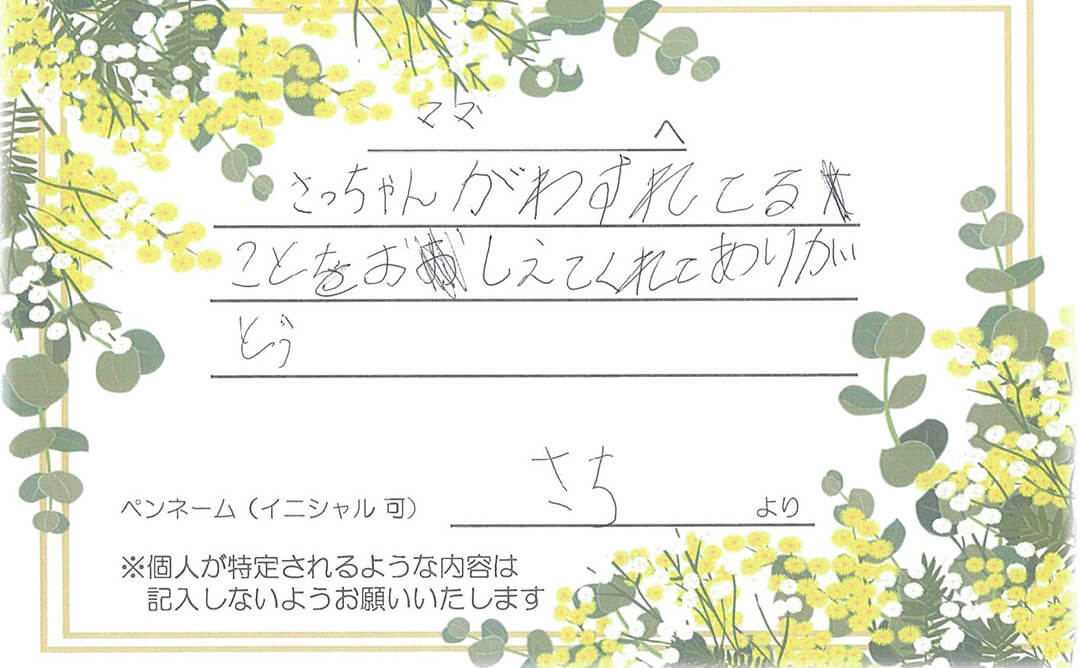 ママ へ
さっちゃんがわすれてる
ことをおしえてくれてありが
とう
ペンネーム（イニシャル 可） さち より
※個人が特定されるような内容は
記入しないようお願いいたします